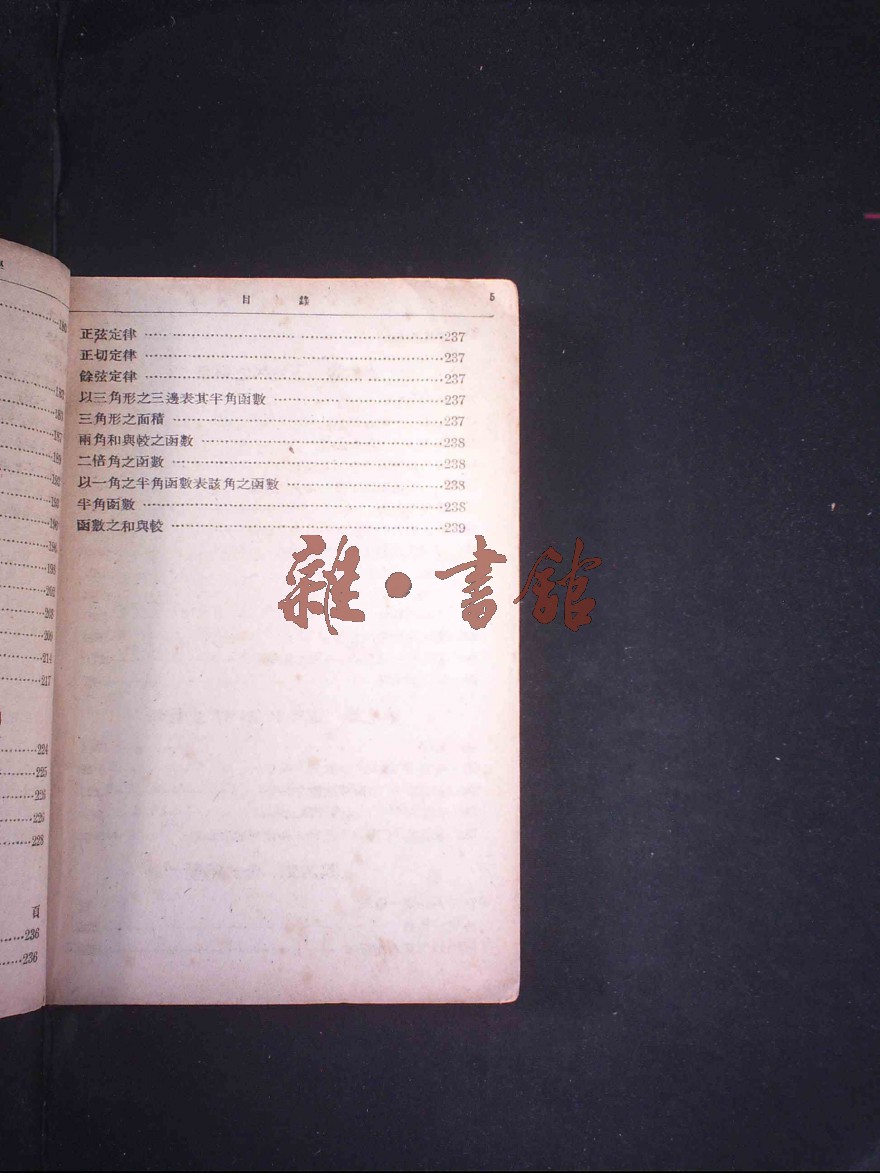 4
180
182
183
187
189
192
193
196
196
198
202
203
209
214
217
224
225
226
226
228
頁
236
236
目 錄 5
正弦定律 237
正切定律 237
餘弦定律 237
以三角形之三邊表其半角函數 237
三角形之面積 237
兩角和與較之函數 238
二倍角之函數 238
以一角之半角函數表該角之函數 238
半角函數 238
函數之和與較 239
雜·書館